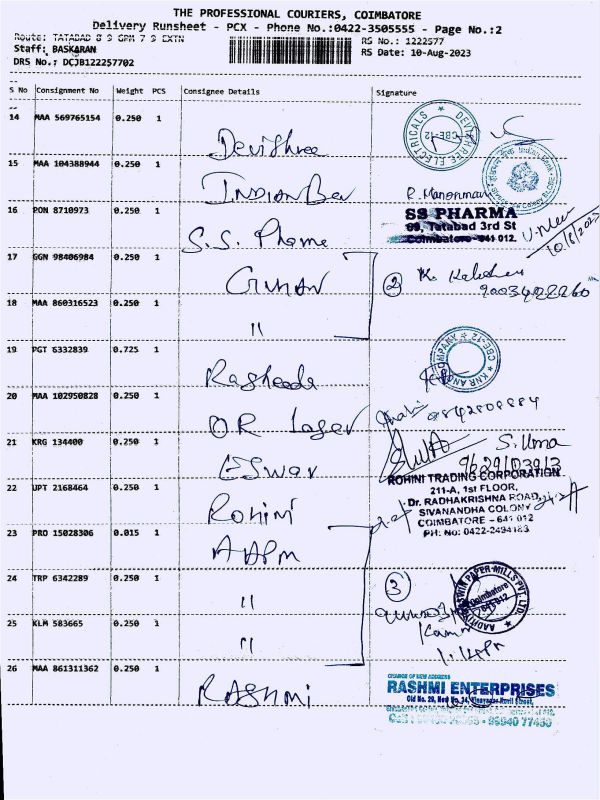 THE PROFESSIONAL COURIERS, COIMBATORE
Delivery Runsheet - PCX - Phone No.:0422-3505555 - Page No.:2
Route: TATABAD 8 9 GPM 7 9 EXTN
RS No.: 1222577
Staff: BASKARAN
RS Date: 10-Aug-2023
DRS No.: DCJB122257702
S No Consignment No Weight PCS Consignee Details Signature
14 MAA 569765154 0.250 1 Devishree
DEVISHREE ELECTRICALS ★ CBE-12 ★
15 MAA 104388944 0.250 1 INDIAN Ban
R. Manonmani
16 PON 8710973 0.250 1 S.S. Phame
SS PHARMA
89, Tatabad 3rd St
Coimbatore - 641 012.
10/8/2023
17 GGN 98406984 0.250 1 GUHAN
2
18 MAA 860316523 0.250 1 "
19 PGT 6332839 0.725 1 Rasheeda
KNR AND COMPANY ★ CBE-12 ★
20 MAA 102950828 0.250 1 OR Laser
21 KRG 134400 0.250 1 ESwar
S. Uma
22 UPT 2168464 0.250 1 Rohini
ROHINI TRADING CORPORATION
211-A, 1st FLOOR,
Dr. RADHAKRISHNA ROAD,
SIVANANDHA COLONY
COIMBATORE - 641 012
PH: No: 0422-2494183
23 PRO 15028306 0.015 1 AAPM
24 TRP 6342289 0.250 1 "
3
AADHAV ASWIN PAPER MILLS PVT. LTD.
Coimbatore
641 012
25 KLM 583665 0.250 1 "
26 MAA 861311362 0.250 1 RASHMI
CHANGE OF NEW ADDRESS
RASHMI ENTERPRISES
Old No. 29, New No. 14,